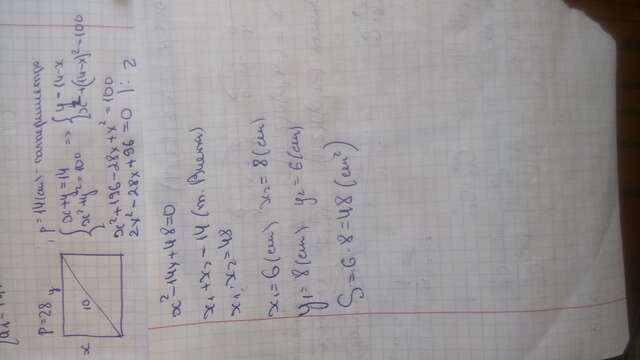 P=28
y
x
10
p=14(см) полупериметр
{x+y=14
x²+y²=100
=> {y=14-x
x²+(14-x)²=100
x²+196-28x+x²=100
2x²-28x+96=0 |:2
x²-14x+48=0
x₁+x₂=14 (т. Виета)
x₁·x₂=48
x₁=6(см) x₂=8(см)
y₁=8(см) y₂=6(см)
S=6·8=48(см²)